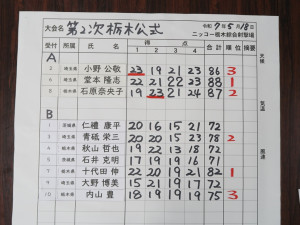 大会名 第2次栃木公式 令和7年5月18日
ニッコー栃木綜合射撃場
受付 所属 氏名 得点 合計 順位 摘要
1 2 3 4
A
2 埼玉県 小野 公敬 23 19 21 23 86 3
埼玉県 堂本 隆志 22 21 22 23 88 1
栃木県 石原奈央子 23 21 24 87 2
B
茨城県 仁禮 康平 20 16 15 21 72
3 埼玉県 青砥 栄三 20 20 15 23 78 2
栃木県 秋山 哲也 19 22 13 18 72
茨城県 石井 克明 17 19 19 16 71
栃木県 十代田 伸 22 20 19 21 82 1
埼玉県 大野 博美 15 21 19 17 72
10 栃木県 内山 豊 18 19 19 19 75 3
天候
気温